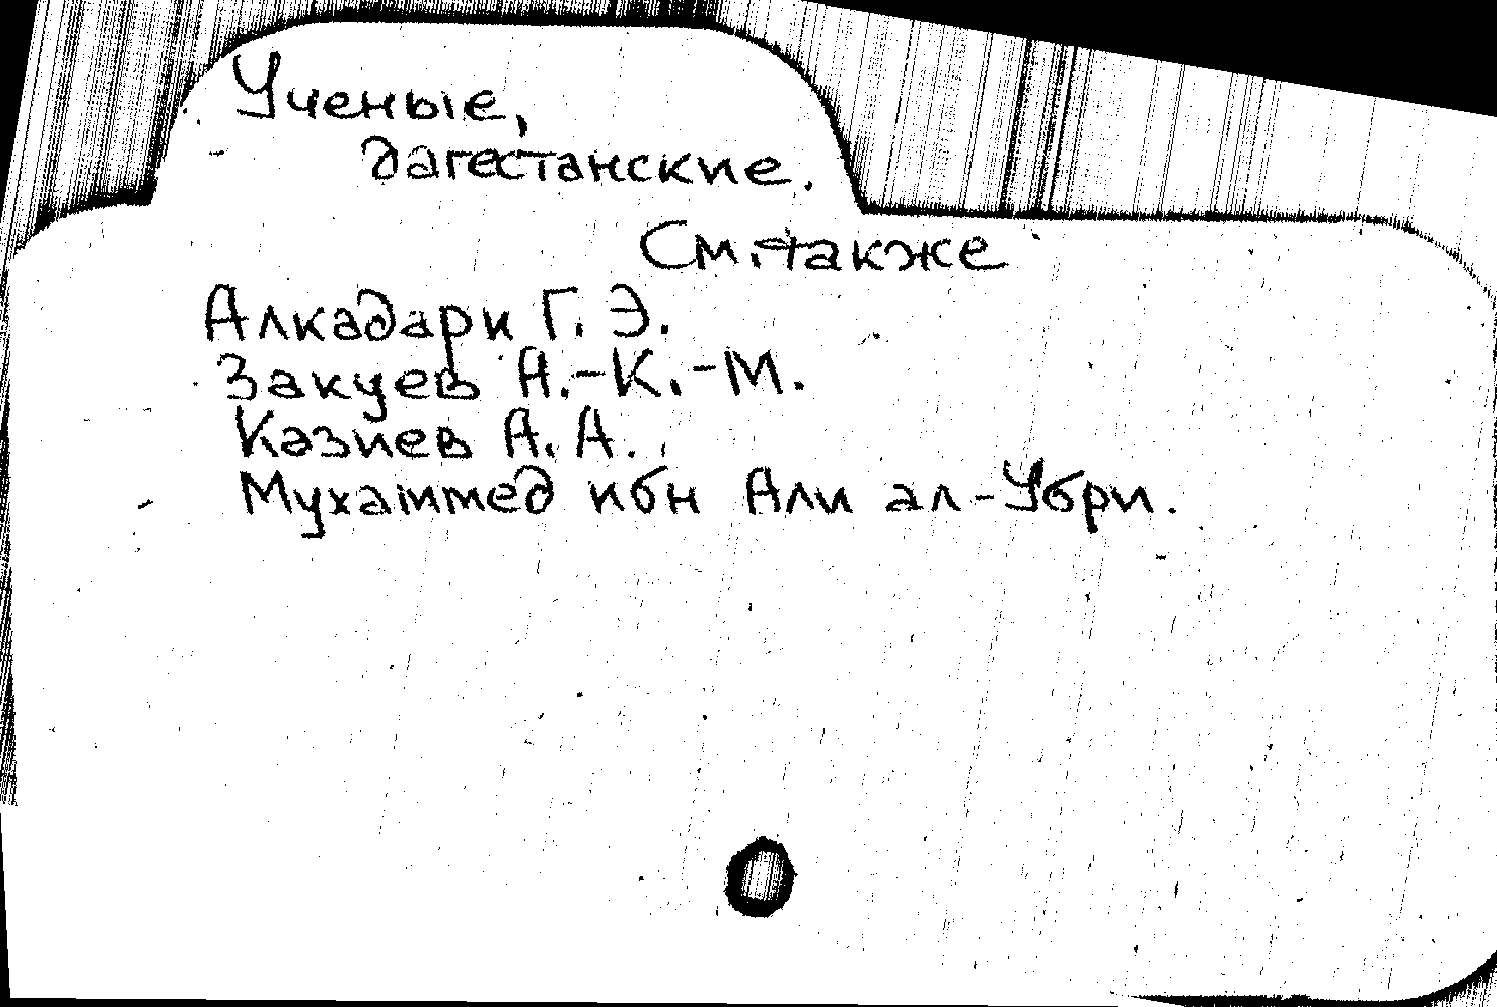 Ученые,
дагестанские.
См. также
Алкадари Г. Э.
Закуев А.-К.-М.
Казиев А. А.
Мухаммед ибн Али ал-Убри.